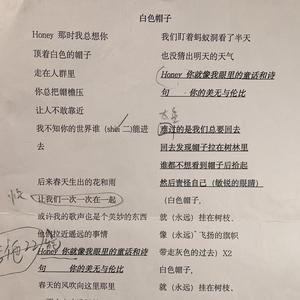 白色帽子
Honey 那时我总想你
顶着白色的帽子
走在人群里
你总把帽檐压
让人不敢靠近
我不知你的世界谁（shin 二)能进
去
后来春天生出的花和雨
让我们一次一次在一起
或许我的歌声也是个美妙的东西
他俩拉近遥远的事情
Honey 你就像我眼里的童话和诗
句 你的美无与伦比
春天的风吹向这那里
我们盯着蚂蚁洞看了半天
也没猜出明天的天气
Honey 你就像我眼里的童话和诗
句 你的美无与伦比
难过的是我们总要回去
回去发现帽子拉在树林里
谁都不想看到帽子后拾起
然后责怪自己（敏锐的眼睛）
(白色帽子,
就（永远）挂在树枝、
像（永远˅飞扬的旗帜
带走灰色的过去）X2
白色帽子,
就（永远）挂在树枝、